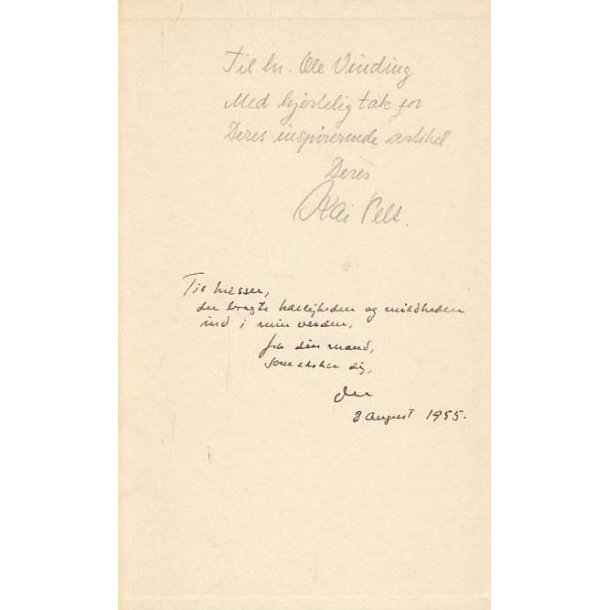 Til hr. Ole Vinding
Med hjertelig tak for
Deres inspirerende artikel
Deres
Kai Pelt.
Til
der bragte kærligheden og mildheden
ind i min verden,
fra din mand,
som elsker dig,
Ole
3 August 1955.